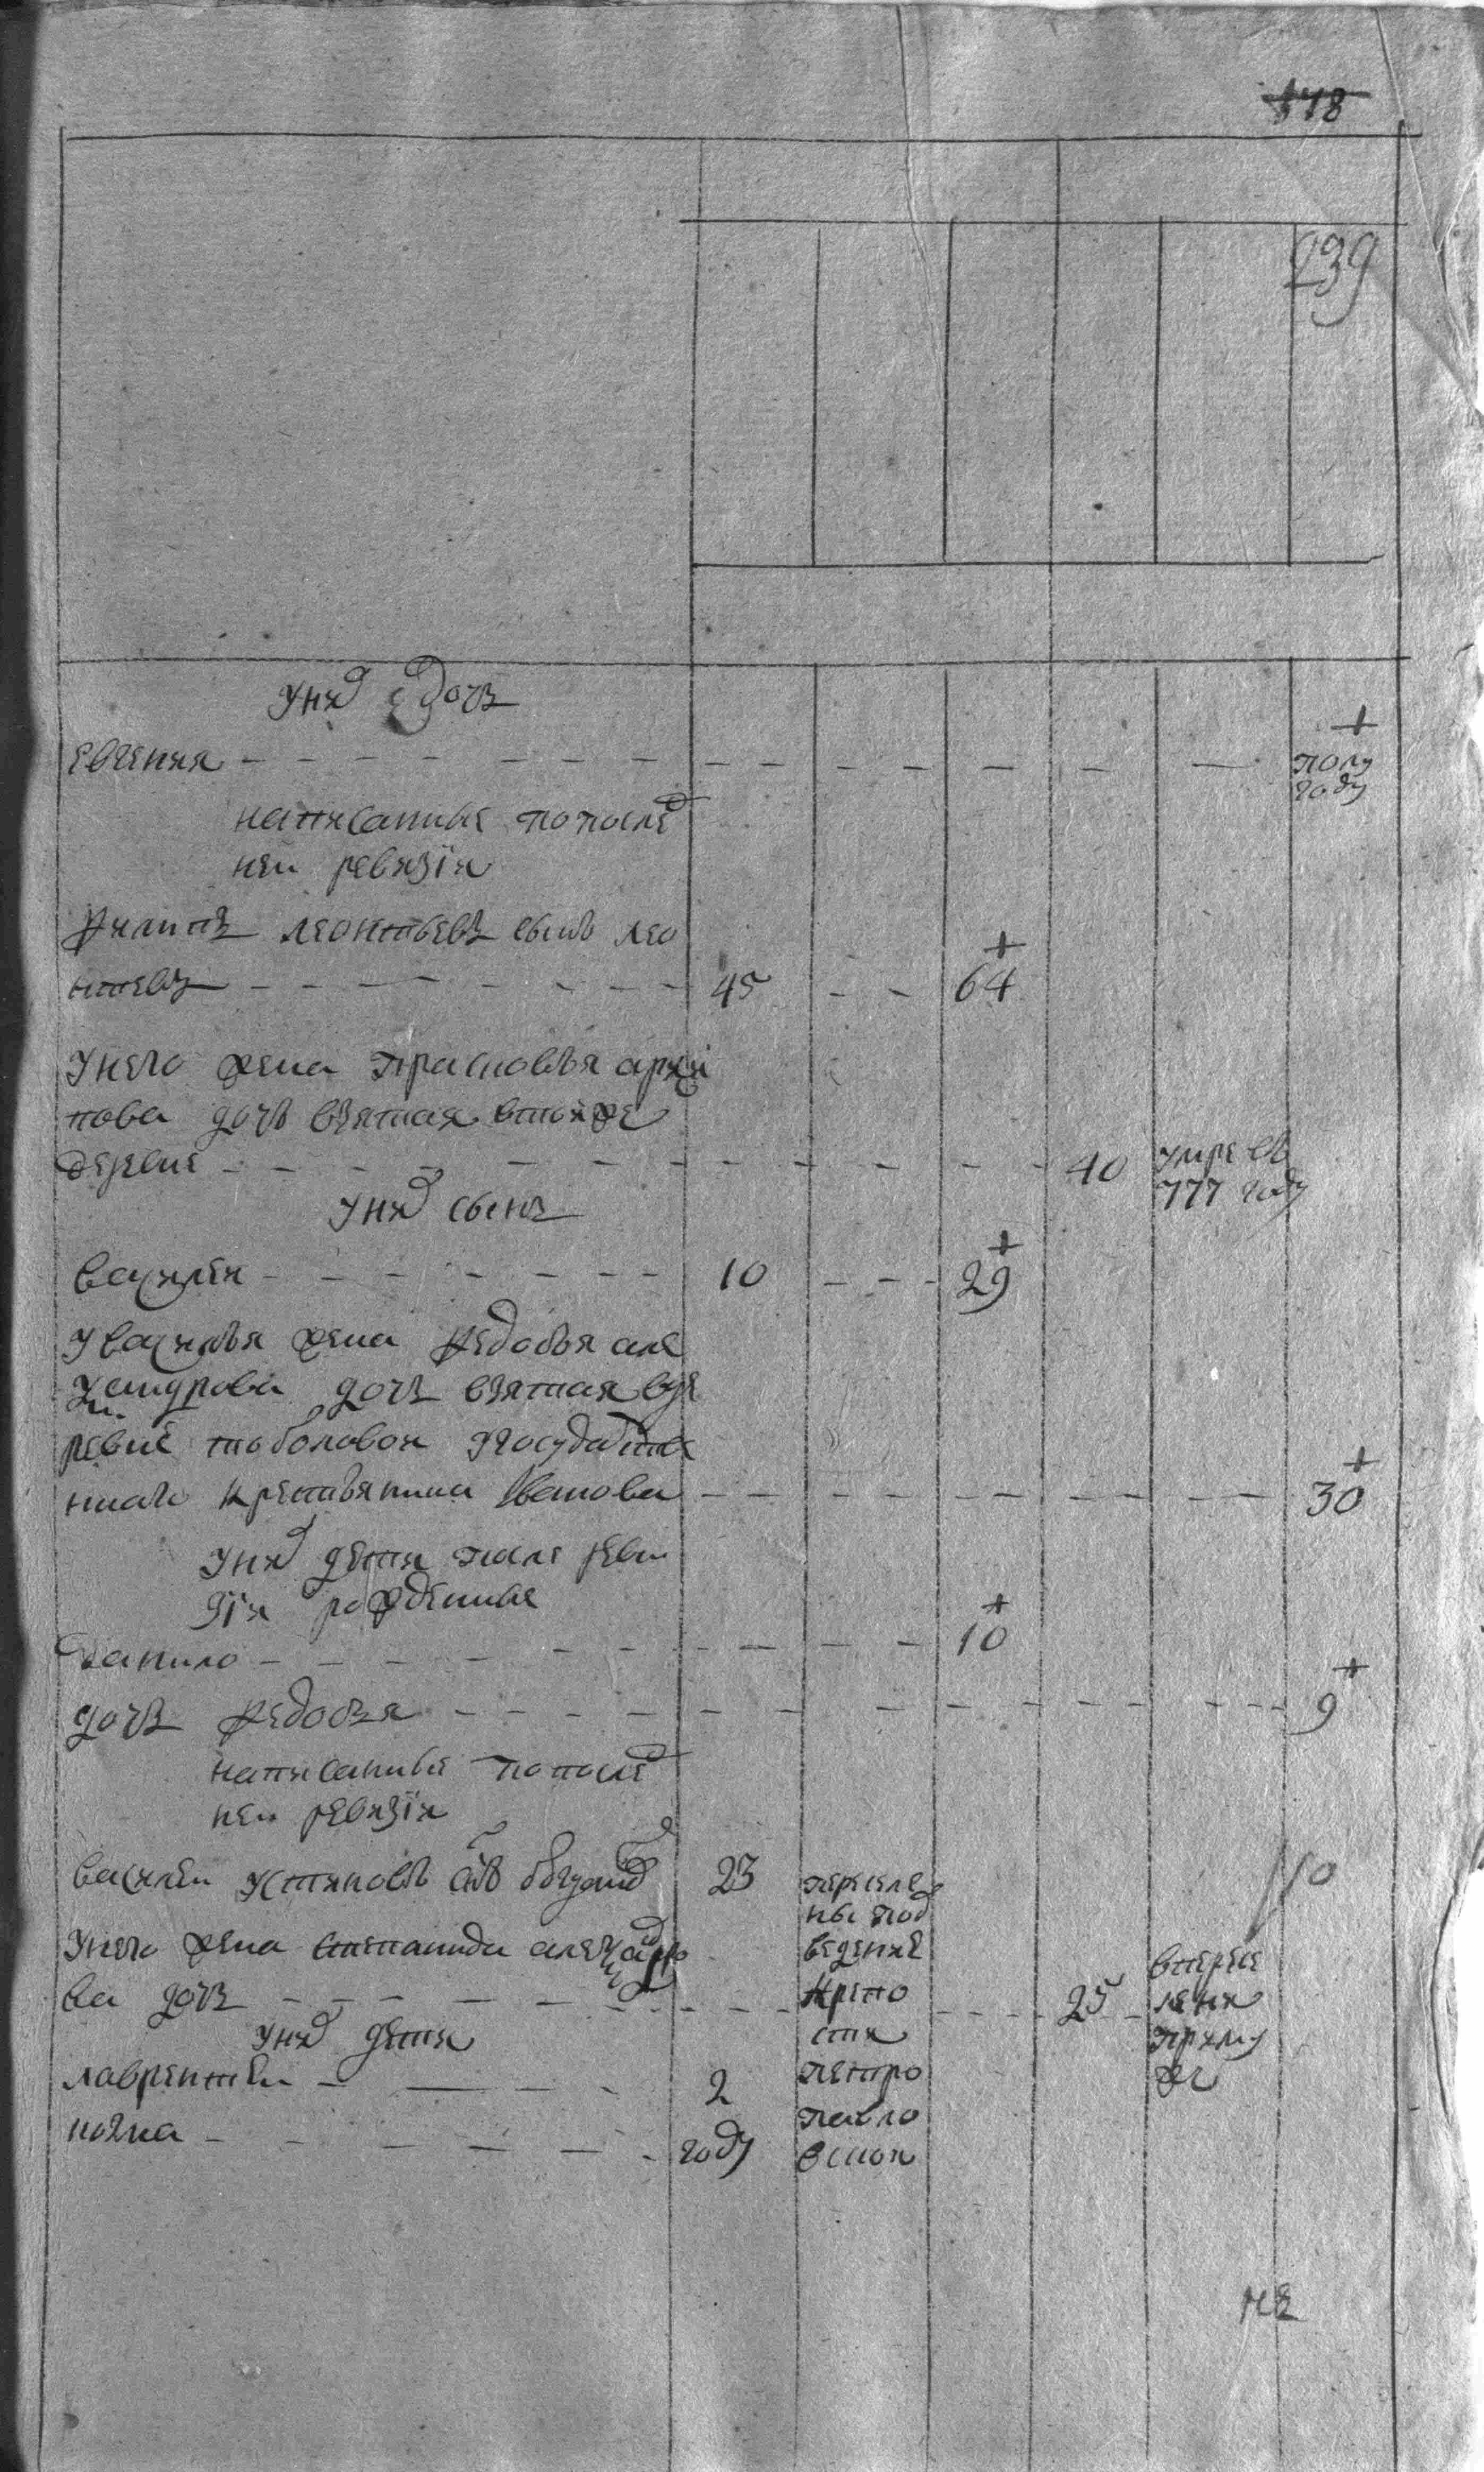 178
239
у них дочь
евгения
полу
году
написанные по послед
ней ревизии
филипъ леонтьевъ сынъ лео
нтьевъ 45 64
у него жена прасковья архи
пова дочь взятая в той же
деревне 40 умре въ
777 году
у них сынъ
василей 10 29
у василья жена федосья але
ксандрова дочь взятая в де
ревне тоболовой у государстве
ннаго крестьянина иванова 30
у них дети после реви
зии рожденные
данило 10
дочь федосья 9
написанные по послед
ней ревизии
василей устиновъ снъ 23
10
переселе
ны под
ведение
крепо
сти
петро
павло
вской
у него жена степанида александро
ва дочь 25
впересе
лении
при му
же
у них дети
лаврентей 2
году